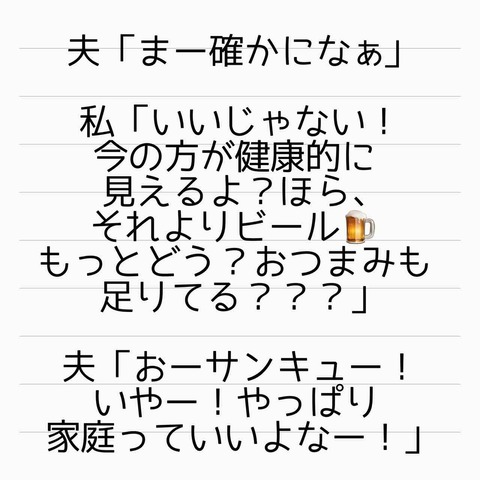 夫「まー確かになぁ」
私「いいじゃない！
今の方が健康的に
見えるよ？ほら、
それよりビール🍺
もっとどう？おつまみも
足りてる？？？」
夫「おーサンキュー！
いやー！やっぱり
家庭っていいよなー！」